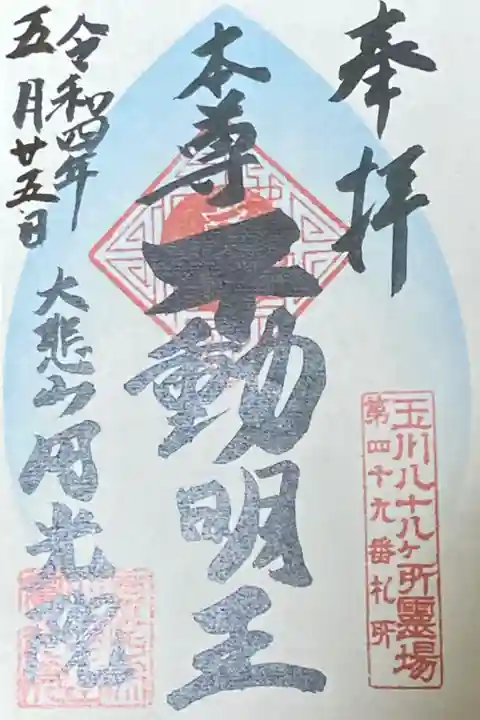 奉拝
玉川八十八ヶ所霊場
第四十九番札所
本尊
不動明王
令和四年
五月廿五日
大悲山
円光院